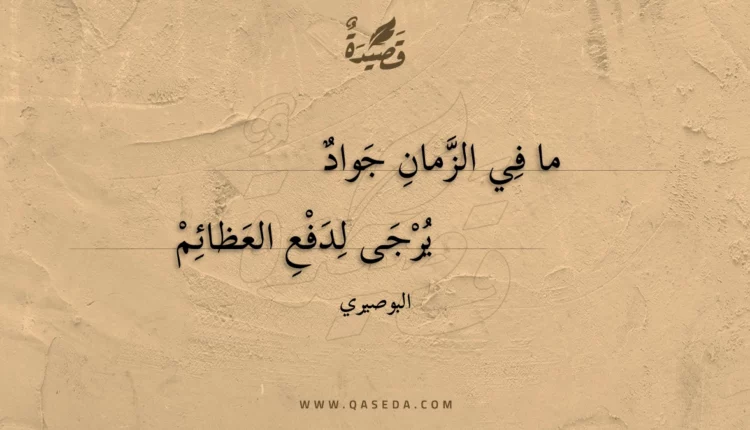 قَصِيدَةٌ
ما فِي الزَّمانِ جَوادٌ
يُرْجَى لِدَفْعِ العَظائِمْ
البوصيري
WWW.QASEDA.COM